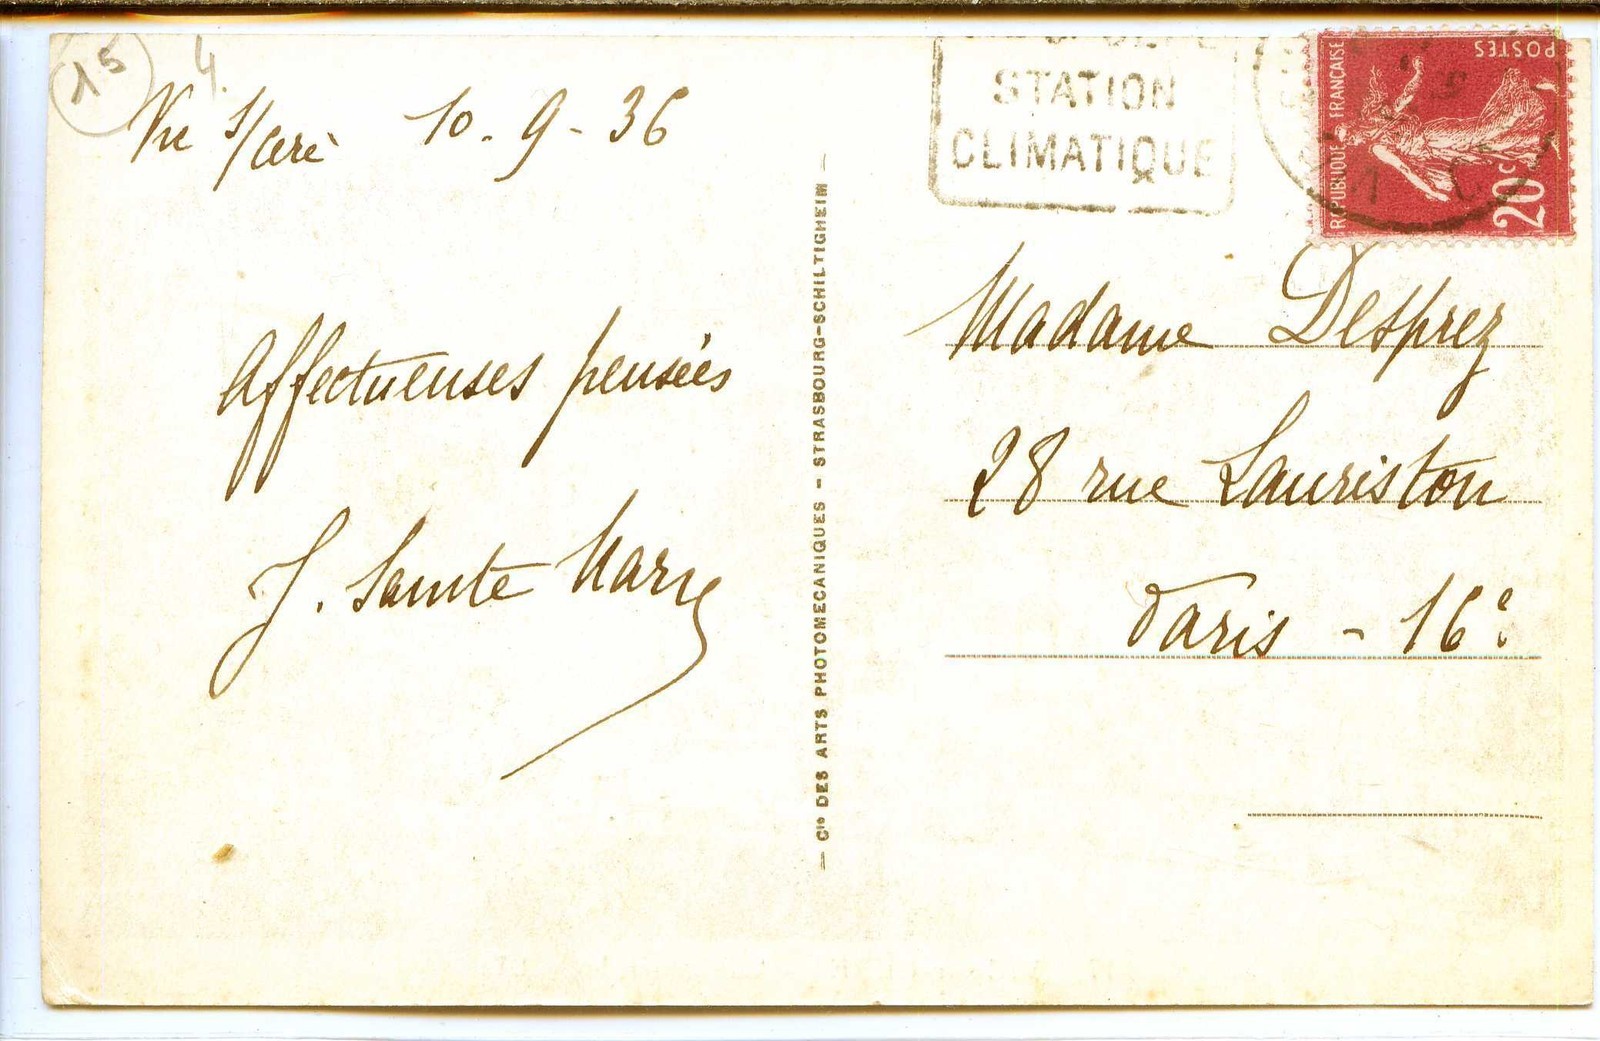 15
4
Vic s/cère 10-9-36
Affectueuses pensées
J. Sainte Marie
— Cie DES ARTS PHOTOMECANIQUES – STRASBOURG-SCHILTIGHEIM —
STATION
CLIMATIQUE
REPUBLIQUE FRANÇAISE
POSTES
20c
Madame Desprez
28 rue Lauriston
Paris - 16e